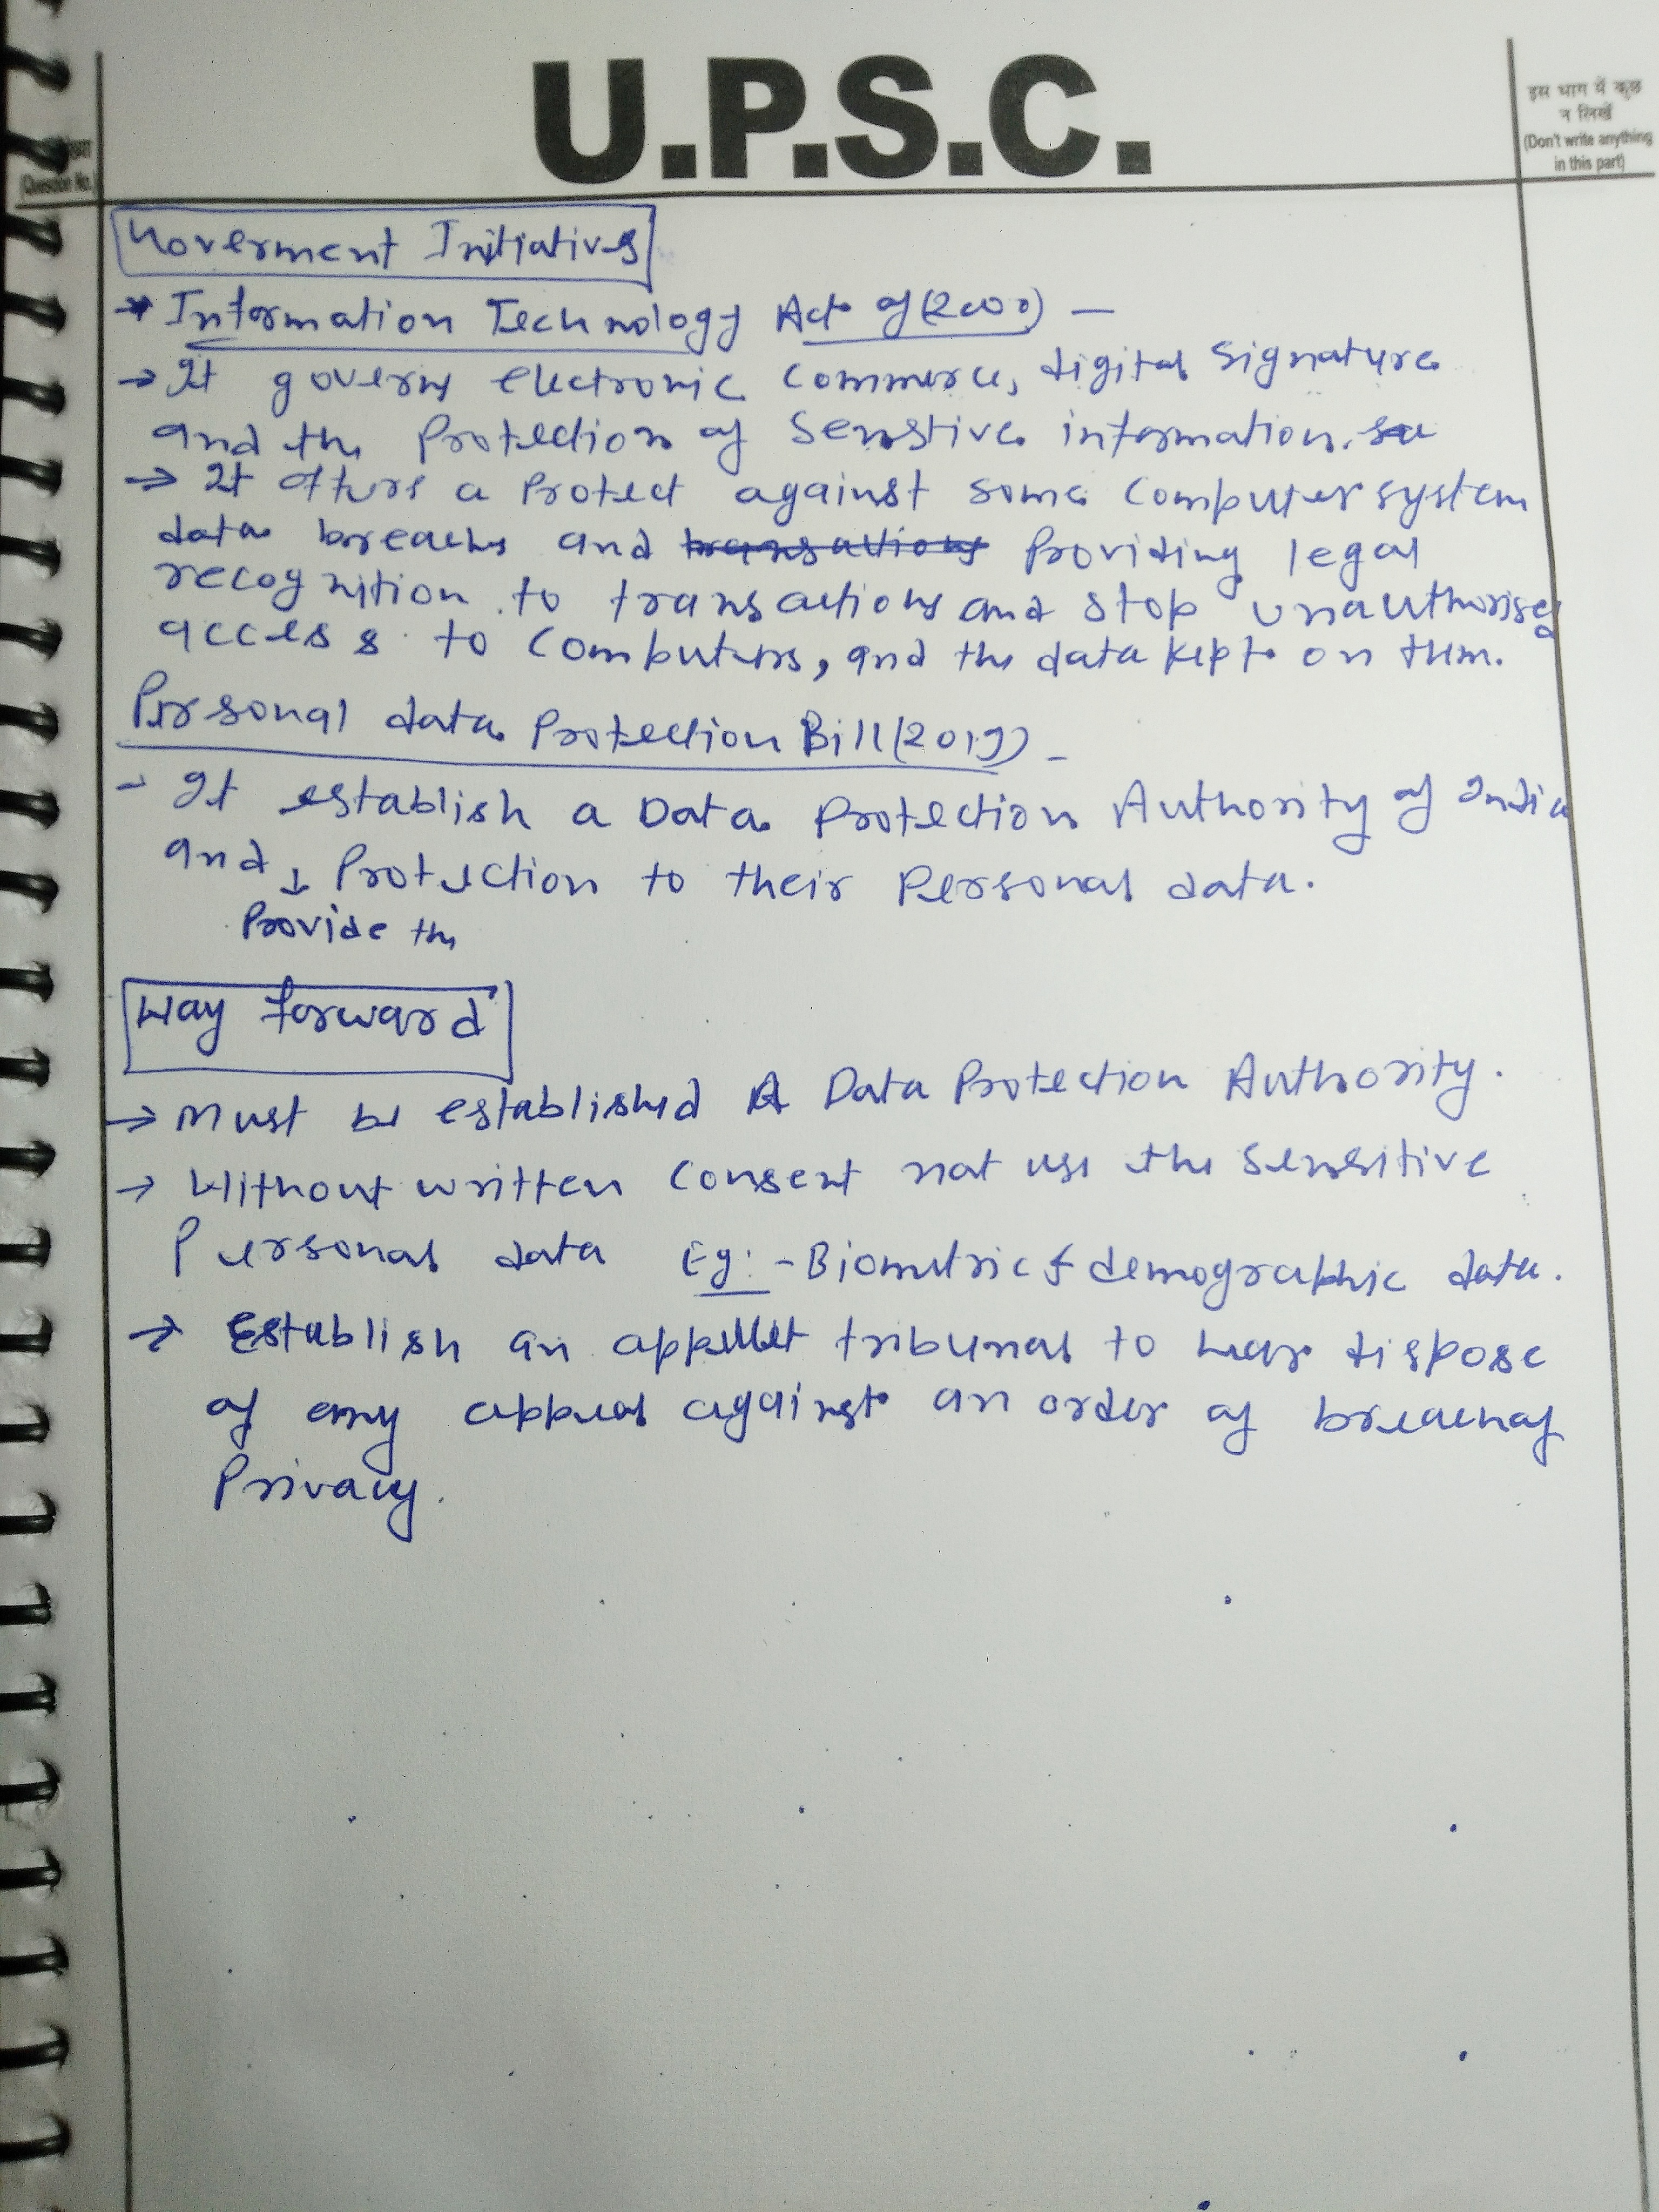 U.P.S.C.
इस भाग में कुछ
न लिखें
(Don't write anything
in this part)
(Question No.
Goverment Initiatives
→ Information Technology Act of (2000) —
→ It governs electronic commerce, digital signature
and the Protection of Senstive information.
→ It offers a Protect against some computer system
data breaches and transactions Providing legal
recognition to transactions and stop unauthorised
access to computers, and the data kept on them.
Personal data Protection Bill (2019) -
- It establish a Data Protection Authority of India
and ↓ Protection to their Personal data.
Provide the
Way forward
→ Must be established A Data Protection Authority.
→ Without written consent not use the sensitive
Personal data Eg:- Biometric & demographic data.
→ Establish an appellet tribunal to hear dispose
of any appeal against an order of breach of
Privacy.